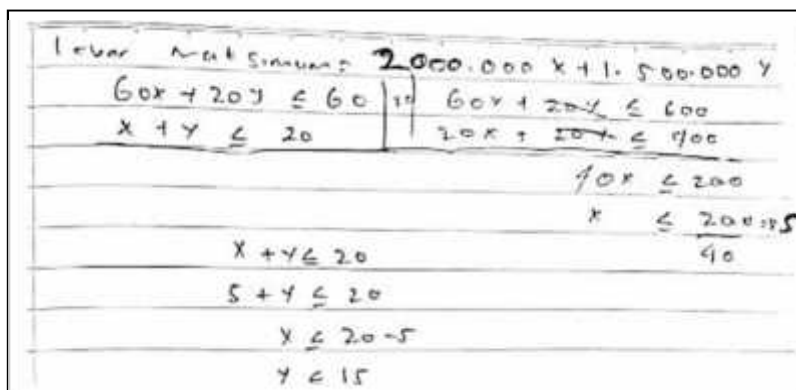 maksimum = 2000.000 x + 1.500.000 y
60x + 20y ≤ 60 | 60x + 20y ≤ 600
x + y ≤ 20 | 20x + 20y ≤ 400
40x ≤ 200
x ≤ 200/40 = 5
x + y ≤ 20
5 + y ≤ 20
y ≤ 20 - 5
y ≤ 15